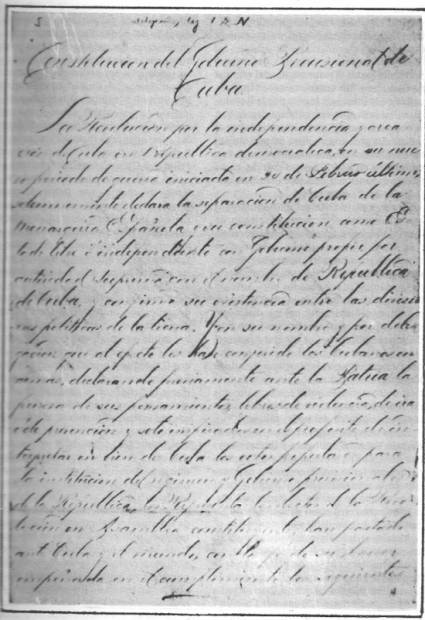 Constitucion del Gobierno Provisional de
Cuba
La Revolucion por la independencia y crea
cion de Cuba en República democratica, en su nue
vo periodo de guerra iniciada en 24 de Febrero último,
solemnemente declara la separacion de Cuba de la
Monarquia Española y su constitucion como Es
tado libre é independiente con Gobierno propio por
autoridad suprema con el nombre de República
de Cuba, y confirma su existencia entre las divisio
nes politicas de la tierra. Y en su nombre y por dele
gacion que al efecto les han conferido los Cubanos en
armas, declarando previamente ante la Patria la
pureza de sus pensamientos, libres de violencia, de ira
ó de prevencion y solo inspirados en el propósito de in
terpretar en bien de Cuba los votos populares para
la institucion del régimen y Gobierno provisionales
de la República, los Representantes de la Revo
lucion en Asamblea constituyente han pactado
ante Cuba y el mundo, con la fé de su honor
empeñada en el cumplimiento, los siguientes